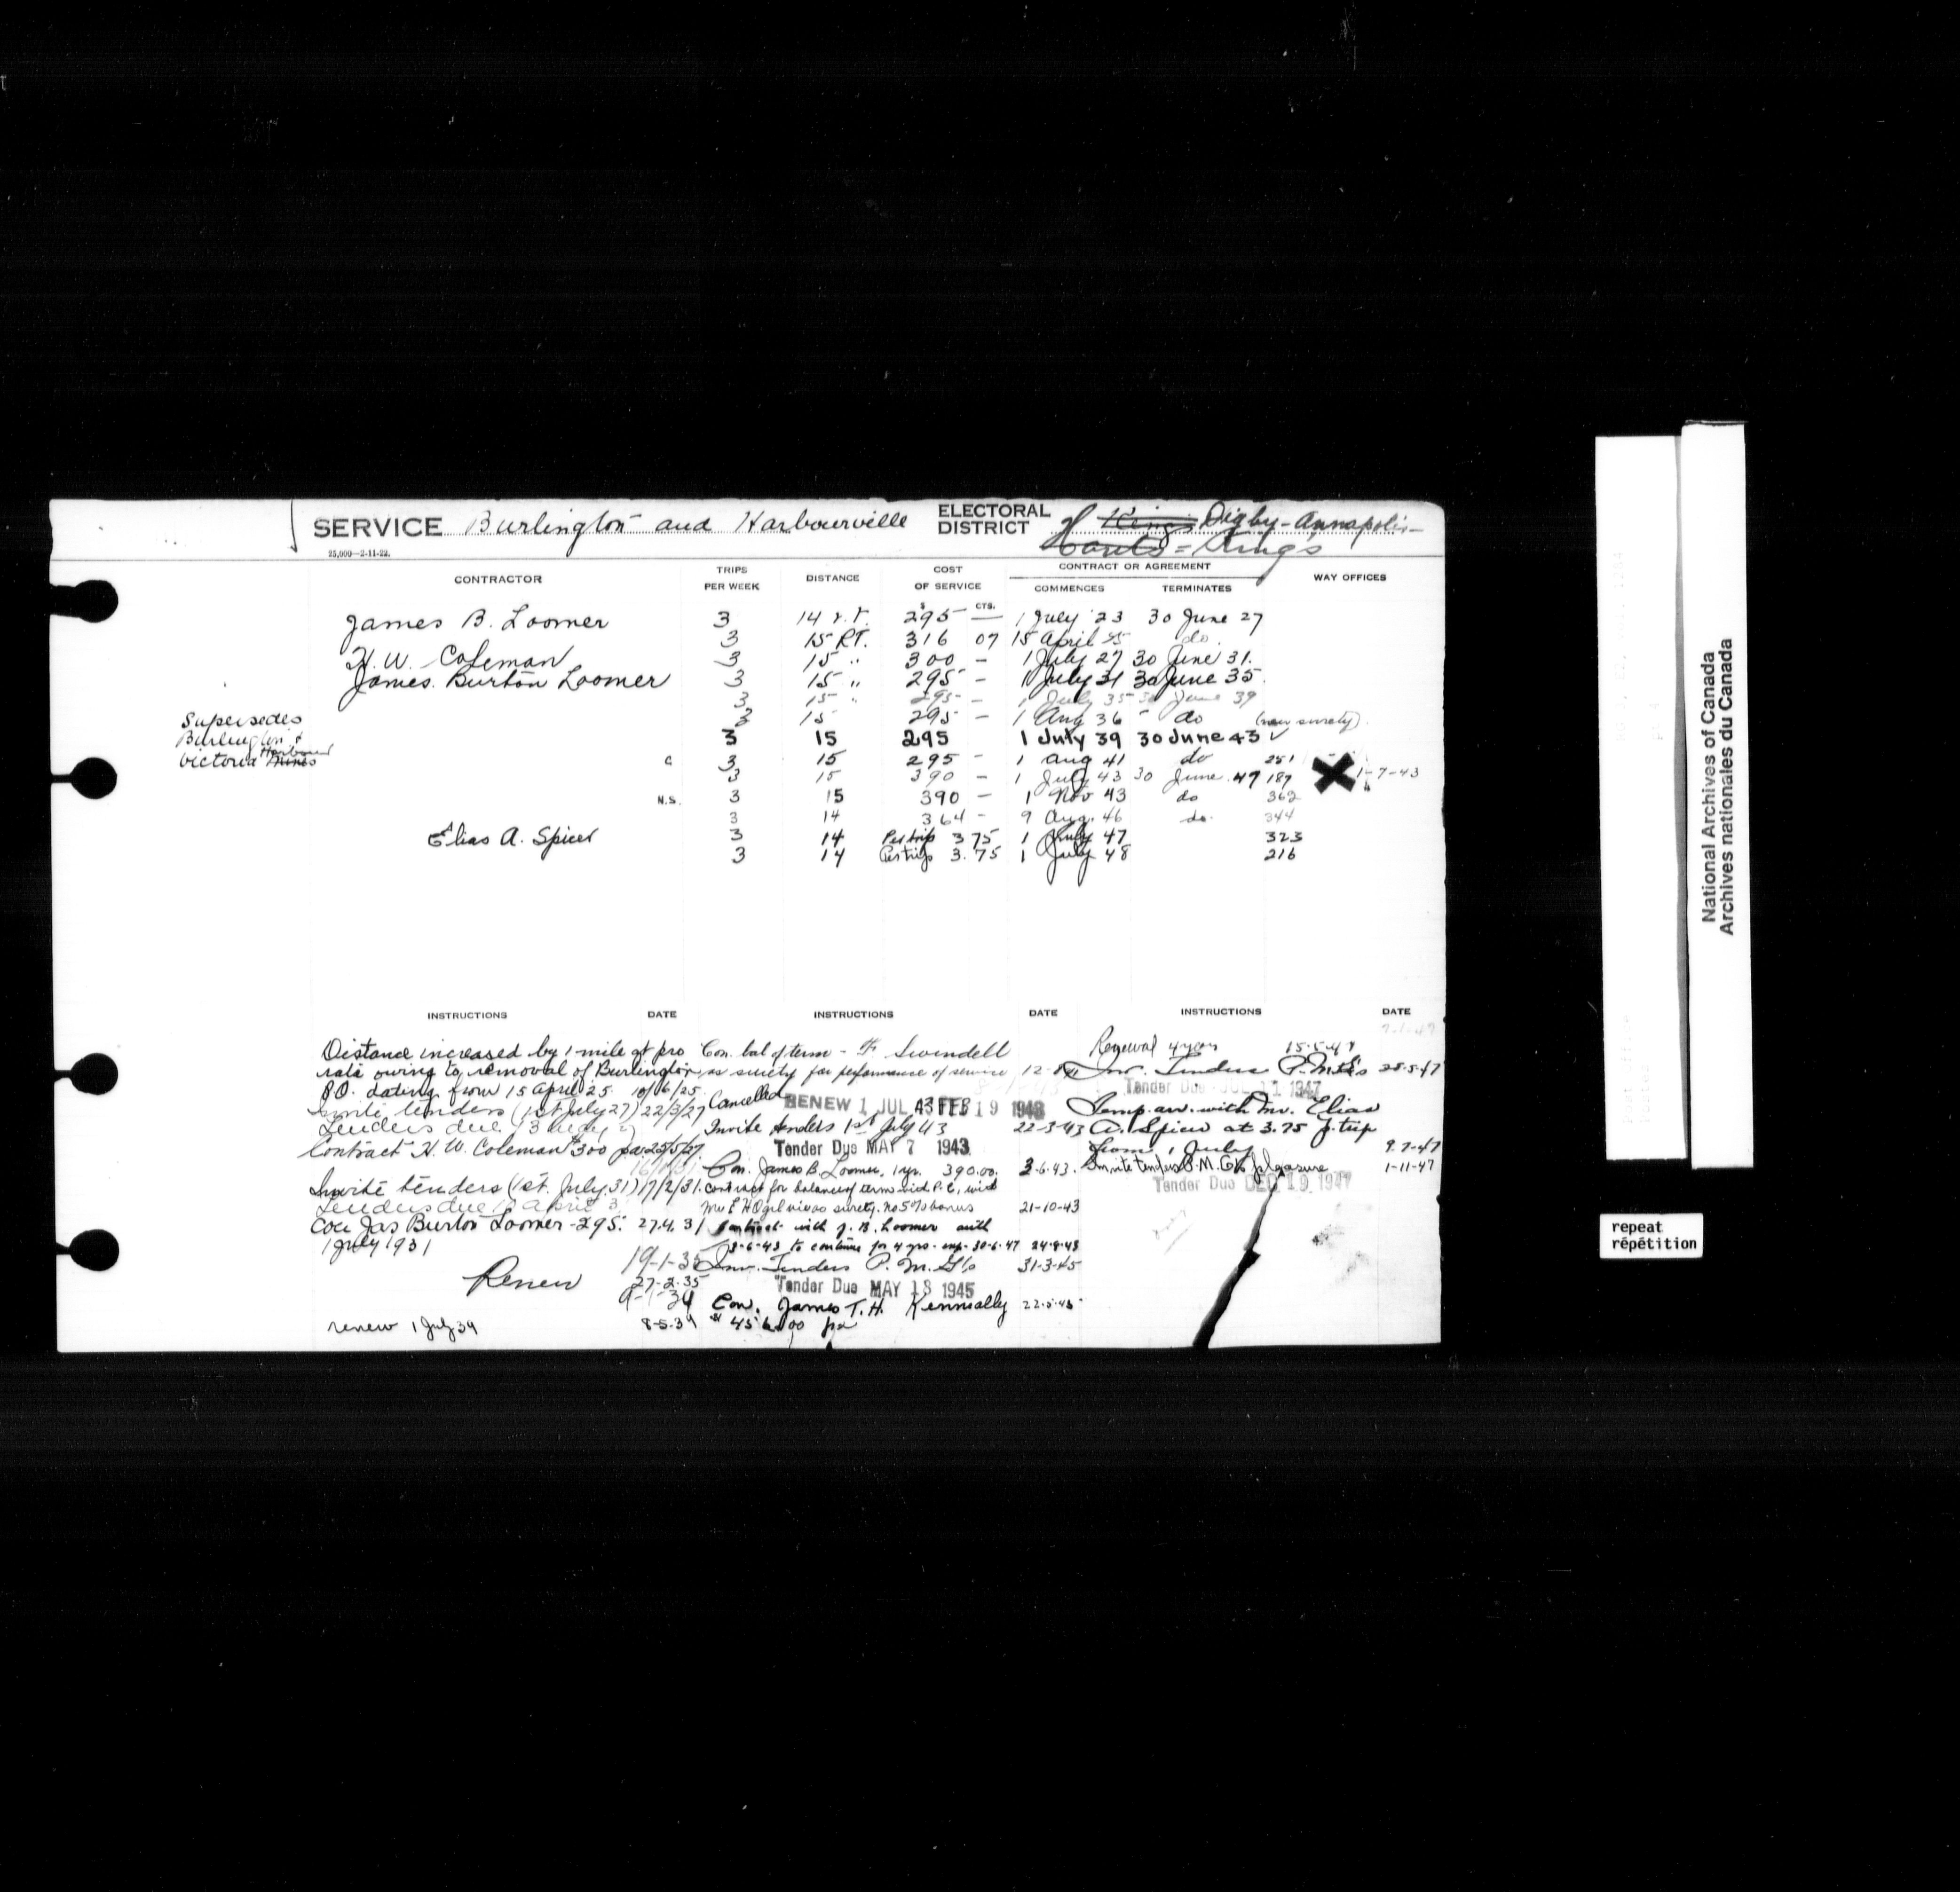 SERVICE Burlington and Harbourville ELECTORAL DISTRICT Kings Digby-Annapolis-
Hants = Kings
25,000—2-11-22.
CONTRACTOR TRIPS PER WEEK DISTANCE COST OF SERVICE CONTRACT OR AGREEMENT COMMENCES TERMINATES WAY OFFICES
$ CTS.
James B. Loomer 3 14 r.t. 295 — 1 July 23 30 June 27
3 15 RT. 316 07 15 April 25 do.
H. W. Coleman 3 15 " 300 - 1 July 27 30 June 31.
James Burton Loomer 3 15 " 295 - 1 July 31 30 June 35.
3 15 " 295 - 1 July 35 30 June 39
Supersedes 3 15 295 - 1 Aug 36 do (new surety)
Burlington & 3 15 295 1 July 39 30 June 43 ✓
Victoria Harbour Mines c 3 15 295 - 1 Aug 41 do 251
3 15 390 - 1 July 43 30 June 47 187 1-7-43
N.S. 3 15 390 - 1 Nov 43 do 362
3 14 364 - 9 Aug. 46 do. 344
Elias A. Spicer 3 14 Per trip 3 75 1 July 47 323
3 14 Per trip 3.75 1 July 48 216
INSTRUCTIONS DATE
Distance increased by 1 mile at pro
rata owing to removal of Burlington
P.O. dating from 15 April 25. 10/6/25.
Invite tenders (1st July 27) 22/3/27
Tenders due 13
Contract H. W. Coleman $300 pa. 25/5/27.
Invite tenders (1st. July, 31) 17/2/31.
Tenders due April 3
Con Jas Burton Loomer - 295. 27.4.31
1 July 1931
19-1-35
Renew 27-2-35
9-1-39
renew 1 July 39 8-5-39
INSTRUCTIONS DATE
Con. bal of term - F. Swindell
as surety for performance of service 12-8-41
Cancelled RENEW 1 JUL 43 FEB 19 1943
Invite tenders 1st July 43 22-3-43
Tender Due MAY 7 1943
Con. James B. Loomer, 1 yr. 390.00. 3-6-43.
Contract for balance of term vid P.C, with
Mrs E H Ogilvie as surety. no 5% bonus 21-10-43
Contract with J. B. Loomer auth
3-6-43 to continue for 4 yrs. exp. 30-6-47 24-8-43
Inv. Tenders P. M. G's 31-3-45
Tender Due MAY 18 1945
Con. James T. H. Kennially 22-5-45
$456.00 pa
INSTRUCTIONS DATE
7-1-47
Renewal 4 years 15-5-47
Inv. Tenders P.M.G's 28-5-47
Tender Due JUL 11 1947
Temp. arr. with Mr. Elias
A. Spicer at 3.75 p. trip
from 1 July 9-7-47
Invite tenders P.M.G's pleasure 1-11-47
Tender Due DEC 19 1947
National Archives of Canada
Archives nationales du Canada
repeat
répétition